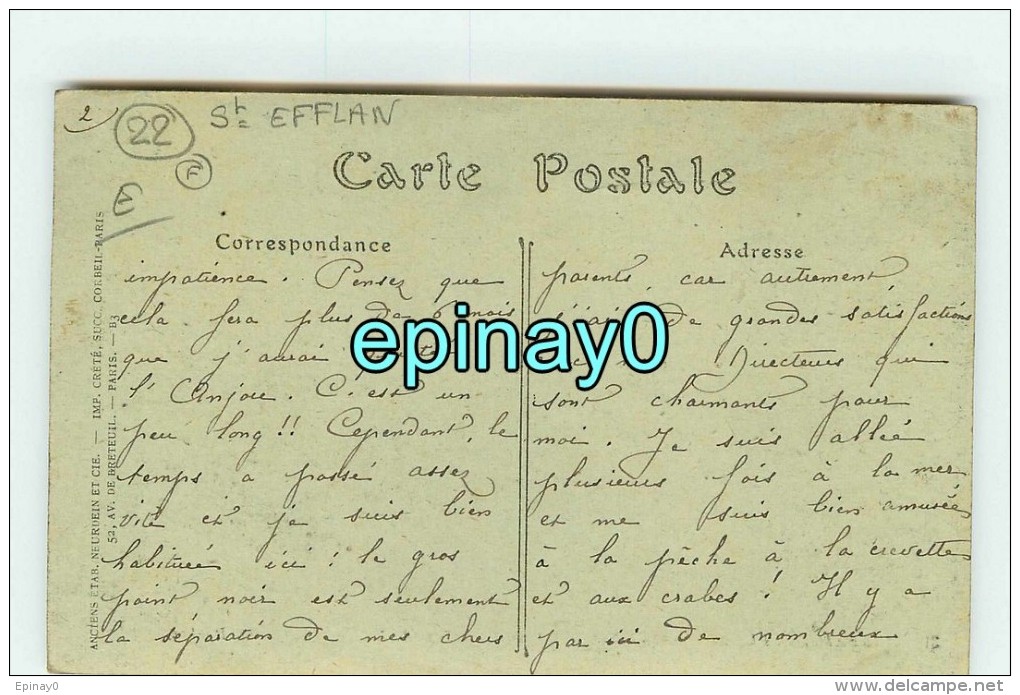 2
22
St EFFLAN
F
E
Carte Postale
Correspondance
impatience. Pensez que
cela fera plus de 6 mois
que j'aurai
l'Anjou. C'est un
peu long!! Cependant, le
temps a passé assez
vite et je suis bien
habituée ici : le gros
point noir est seulement
la séparation de mes chers
Adresse
parents, car autrement,
j'ai de grandes satisfactions
Directeurs qui
sont charmants pour
moi. Je suis allée
plusieurs fois à la mer
et me suis bien amusée
à la pêche à la crevette
et aux crabes! Il y a
par ici de nombreux
ANCIENS ETAB. NEURDEIN ET CIE. — IMP. CRÉTÉ, SUCC. CORBEIL-PARIS
52, AV. DE BRETEUIL. — PARIS. — B3
epinay0
Epinay0
www.delcampe.net